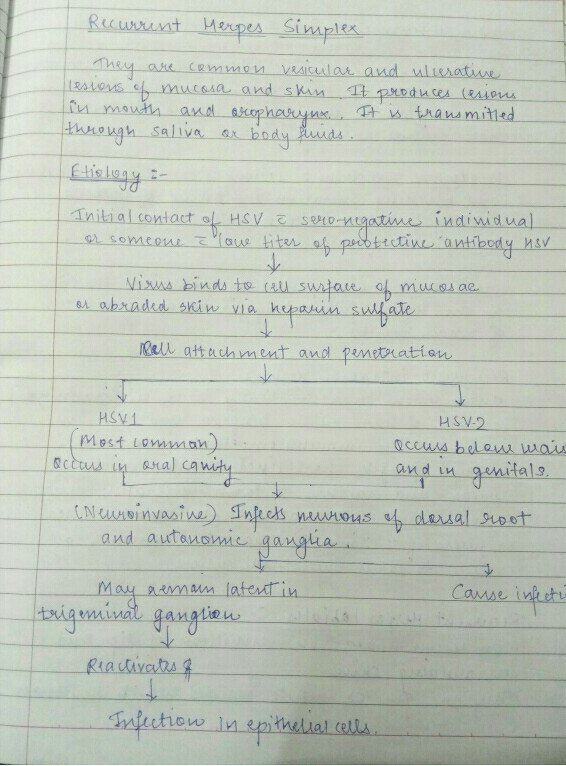 Recurrent Herpes Simplex
They are common vesicular and ulcerative
lesions of mucosa and skin. It produces lesions
in mouth and oropharynx. It is transmitted
through saliva or body fluids.
Etiology :-
Initial contact of HSV c̄ sero-negative individual
or someone c̄ low titer of protective antibody HSV
↓
Virus binds to cell surface of mucosae
or abraded skin via heparin sulfate
↓
Cell attachment and penetration
↓
HSV1 HSV-2
(Most common) Occurs below
occurs in oral cavity and in genitals.
↓
(Neuroinvasive) Infects neurons of dorsal root
and autonomic ganglia.
↓ ↓
May remain latent in Cause
trigeminal ganglion
↓
Reactivates
↓
Infection in epithelial cells.